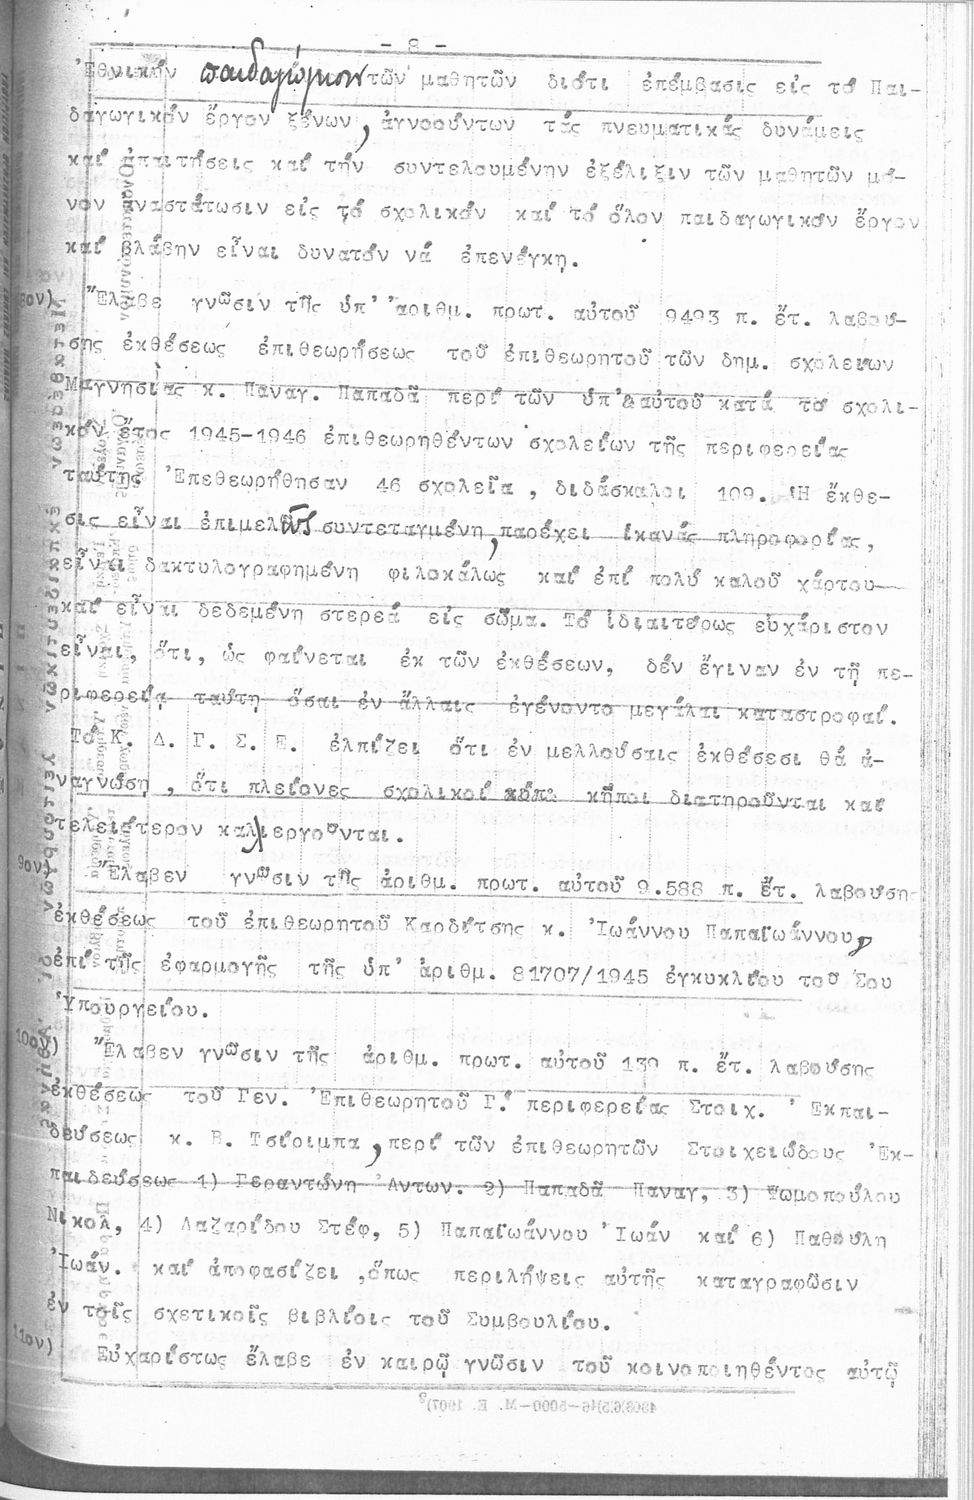 - 8 -
Ἐθνικήν παιδαγώγησιν τῶν μαθητῶν διότι ἐπέμβασις εἰς τό Παι-
δαγωγικόν ἔργον ξένων, ἀγνοούντων τάς πνευματικάς δυνάμεις
καί ἀπαιτήσεις καί τήν συντελουμένην ἐξέλιξιν τῶν μαθητῶν μό-
νον ἀναστάτωσιν εἰς τό σχολικόν καί τό ὅλον παιδαγωγικόν ἔργον
καί βλάβην εἶναι δυνατόν νά ἐπενέγκη.
8ον) Ἔλαβε γνῶσιν τῆς ὑπ' ἀριθμ. πρωτ. αὐτοῦ 9493 π. ἔτ. λαβού-
σης ἐκθέσεως ἐπιθεωρήσεως τοῦ ἐπιθεωρητοῦ τῶν δημ. σχολείων
Μαγνησίας κ. Παναγ. Παπαδᾶ περί τῶν ὑπ' αὐτοῦ κατά τό σχολι-
κόν ἔτος 1945-1946 ἐπιθεωρηθέντων σχολείων τῆς περιφερείας
ταύτης Ἐπεθεωρήθησαν 46 σχολεῖα, διδάσκαλοι 109. Ἡ ἔκθε-
σις εἶναι ἐπιμελῶς συντεταγμένη, παρέχει ἱκανάς πληροφορίας,
εἶναι δακτυλογραφημένη φιλοκάλως καί ἐπί πολύ καλοῦ χάρτου
καί εἶναι δεδεμένη στερεά εἰς σῶμα. Τό ἰδιαιτέρως εὐχάριστον
εἶναι, ὅτι, ὡς φαίνεται ἐκ τῶν ἐκθέσεων, δέν ἔγιναν ἐν τῇ πε-
ριφερείᾳ ταύτη ὅσαι ἐν ἄλλαις ἐγένοντο μεγάλαι καταστροφαί.
Τό Κ. Δ. Γ. Σ. Ε. ἐλπίζει ὅτι ἐν μελλούσαις ἐκθέσεσι θά ἀ-
ναγνώση, ὅτι πλείονες σχολικοί κῆποι διατηροῦνται καί
τελειότερον καλλιεργοῦνται.
9ον) Ἔλαβεν γνῶσιν τῆς ἀριθμ. πρωτ. αὐτοῦ 9.588 π. ἔτ. λαβούσης
ἐκθέσεως τοῦ ἐπιθεωρητοῦ Καρδίτσης κ. Ἰωάννου Παπαϊωάννου,
ἐπί τῆς ἐφαρμογῆς τῆς ὑπ' ἀριθμ. 81707/1945 ἐγκυκλίου τοῦ Σου
Ὑπουργείου.
10ον) Ἔλαβεν γνῶσιν τῆς ἀριθμ. πρωτ. αὐτοῦ 139 π. ἔτ. λαβούσης
ἐκθέσεως τοῦ Γεν. Ἐπιθεωρητοῦ Γ! περιφερείας Στοιχ. Ἐκπαι-
δεύσεως κ. Β. Τσίριμπα, περί τῶν ἐπιθεωρητῶν Στοιχειώδους Ἐκ-
παιδεύσεως 1) Γεραντώνη Ἀντων. 2) Παπαδᾶ Παναγ, 3) Ψωμοπούλου
Νικολ, 4) Λαζαρίδου Στέφ, 5) Παπαϊωάννου Ἰωάν καί 6) Παθούλη
Ἰωάν. καί ἀποφασίζει, ὅπως περιλήψεις αὐτῆς καταγραφῶσιν
ἐν τοῖς σχετικοῖς βιβλίοις τοῦ Συμβουλίου.
11ον) Εὐχαρίστως ἔλαβε ἐν καιρῷ γνῶσιν τοῦ κοινοποιηθέντος αὐτῷ